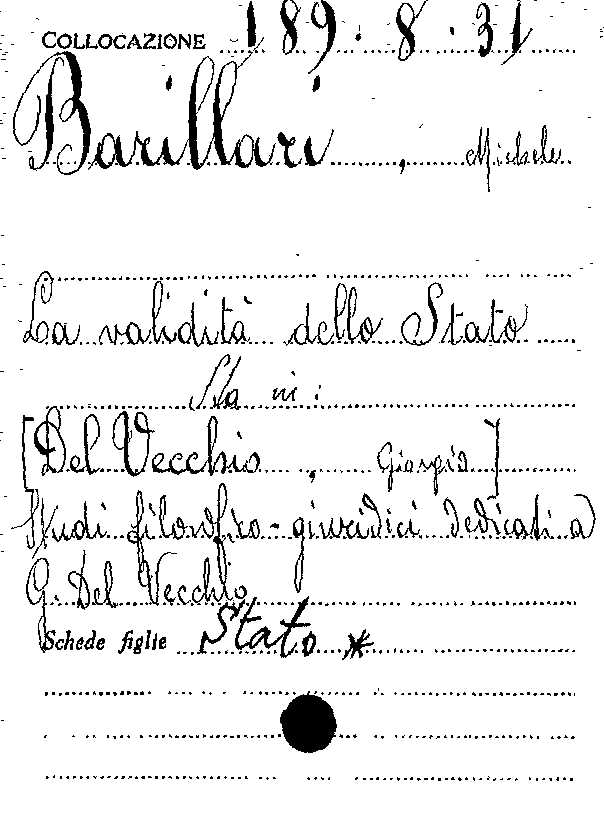 COLLOCAZIONE 189.8.31
Barillari, Michele
La validità dello Stato
Sta in:
[Del Vecchio, Giorgio]
Studi filosofico-giuridici dedicati a
G. Del Vecchio
Schede figlie Stato *